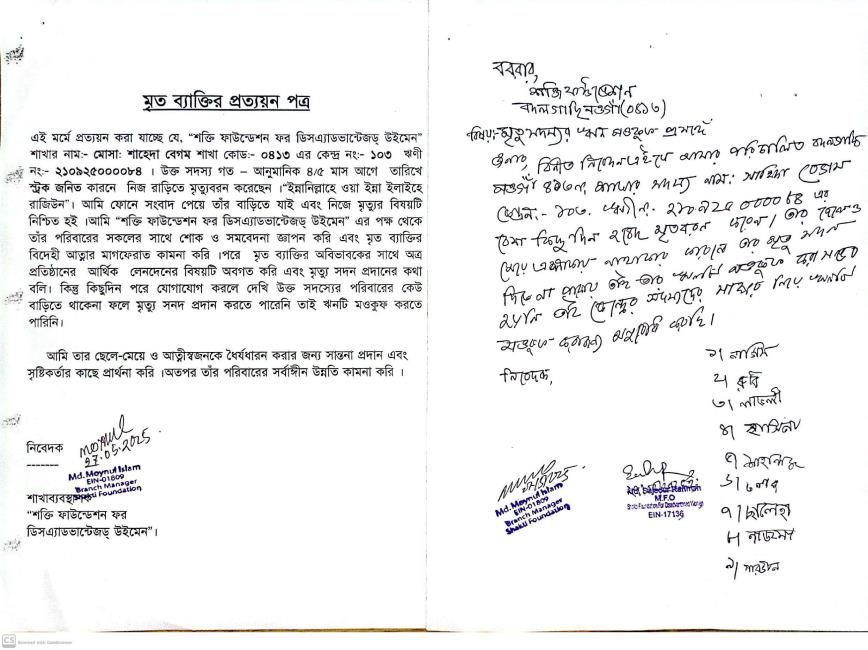 মৃত ব্যাক্তির প্রত্যয়ন পত্র
এই মর্মে প্রত্যয়ন করা যাচ্ছে যে, “শক্তি ফাউন্ডেশন ফর ডিসএ্যাডভান্টেজড্ উইমেন”
শাখার নাম:- মোসা: শাহেদা বেগম শাখা কোড:- ০৪১৩ এর কেন্দ্র নং:- ১০৩ ঋণী
নং:- ২১০৯২৫০০০০৮৪ । উক্ত সদস্য গত – আনুমানিক ৪/৫ মাস আগে তারিখে
স্ট্রক জনিত কারনে নিজ রাড়িতে মৃত্যুবরন করেছেন ।“ইন্নানিল্লাহে ওয়া ইন্না ইলাইহে
রাজিউন”। আমি ফোনে সংবাদ পেয়ে তাঁর বাড়িতে যাই এবং নিজে মৃত্যুর বিষয়টি
নিশ্চিত হই ।আমি “শক্তি ফাউন্ডেশন ফর ডিসএ্যাডভান্টেজড্ উইমেন” এর পক্ষ থেকে
তাঁর পরিবারের সকলের সাথে শোক ও সমবেদনা জ্ঞাপন করি এবং মৃত ব্যাক্তির
বিদেহী আত্নার মাগফেরাত কামনা করি ।পরে মৃত ব্যাক্তির অবিভাবকের সাথে অত্র
প্রতিষ্ঠানের আর্থিক লেনদেনের বিষয়টি অবগত করি এবং মৃত্যু সদন প্রদানের কথা
বলি। কিন্তু কিছুদিন পরে যোগাযোগ করলে দেখি উক্ত সদস্যের পরিবারের কেউ
বাড়িতে থাকেনা ফলে মৃত্যু সনদ প্রদান করতে পারেনি তাই ঋনটি মওকুফ করতে
পারিনি।
আমি তার ছেলে-মেয়ে ও আত্নীস্বজনকে ধৈর্যধারন করার জন্য সান্তনা প্রদান এবং
সৃষ্টিকর্তার কাছে প্রার্থনা করি ।অতপর তাঁর পরিবারের সর্বাঙ্গীন উন্নতি কামনা করি ।
নিবেদক
-------
27.05.2025
Md. Moynul Islam
EIN-01809
Branch Manager
Shakti Foundation
শাখাব্যবস্থাপক
“শক্তি ফাউন্ডেশন ফর
ডিসএ্যাডভান্টেজড্ উইমেন”।
বরবার,
শক্তি ফাউন্ডেশন
বদলগাছি নওগাঁ (০৪১৩)
বিষয়:- মৃত সদস্যের ঋন মওকুফ প্রসঙ্গে
জনাব, বিনীত নিবেদন এই যে আমার পরিচালিত বদলগাছি
নওগাঁ সদস্য নাম: সাহিদা বেগম
কেন্দ্র:- ১০৩. ২১০৯২৫ ০০০০৮৪ এর
বেশ কিছু দিন মৃতবরন করেন। তার ছেলে
কারনে তার মৃত্যু সনদ
দিতে না তাই তার ঋনটি মওকুফ করা সম্ভব
হয়নি তাই কেন্দ্রের সদস্যদের নিয়ে ঋনটি
মওকুফ করার অনুরোধ করছি।
নিবেদক,
১। নাসিমা
২। রুবি
৩। লাভলী
৪।
৫।
৬।
৭। ছালেহা
৮। নাজমা
৯। পারভীন
Md. Moynul Islam
EIN-01809
Branch Manager
Shakti Foundation
M.F.O
Shakti Foundation For Disadvantaged Women
EIN-17136
CS Scanned with CamScanner